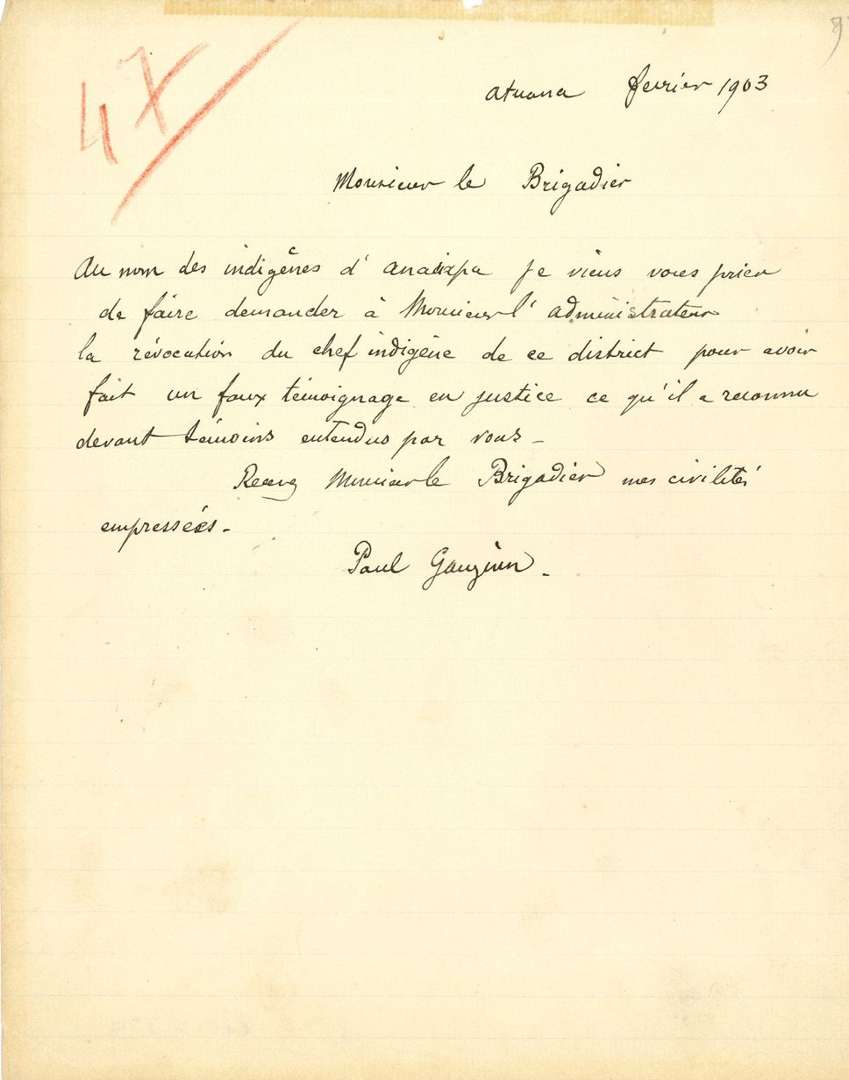 47
atuana fevrier 1903
Monsieur le Brigadier
Au nom des indigènes d' je viens vous prier
de faire demander à Monsieur l'administrateur
la révocation du chef indigène de ce district pour avoir
fait un faux témoignage en justice ce qu'il a reconnu
devant témoins entendus par vous_
Recevez Monsieur le Brigadier mes civilités
empressées_
Paul